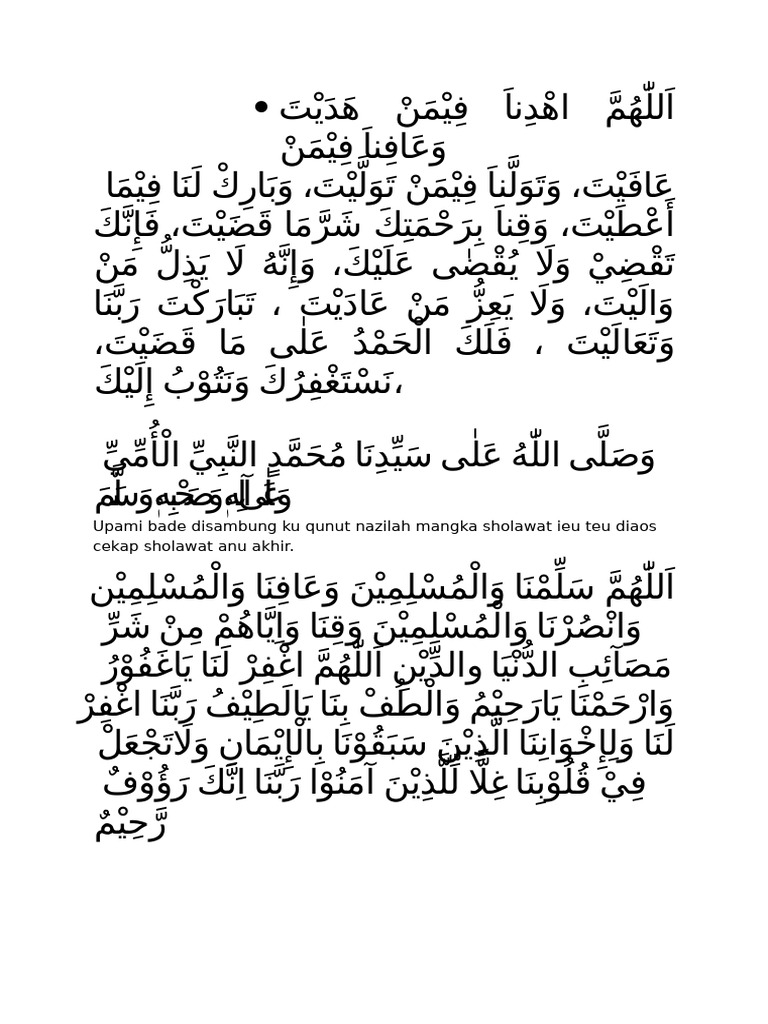 • اَللّٰهُمَّ اهْدِناَ فِيْمَنْ هَدَيْتَ
وَعَافِناَ فِيْمَنْ
عَافَيْتَ، وَتَوَلَّناَ فِيْمَنْ تَوَلَّيْتَ، وَبَارِكْ لَنَا فِيْمَا
أَعْطَيْتَ، وَقِناَ بِرَحْمَتِكَ شَرَّمَا قَضَيْتَ، فَإِنَّكَ
تَقْضِيْ وَلَا يُقْضٰى عَلَيْكَ، وَإِنَّهُ لَا يَذِلُّ مَنْ
وَالَيْتَ، وَلَا يَعِزُّ مَنْ عَادَيْتَ ، تَبَارَكْتَ رَبَّنَا
وَتَعَالَيْتَ ، فَلَكَ الْحَمْدُ عَلٰى مَا قَضَيْتَ،
نَسْتَغْفِرُكَ وَنَتُوْبُ إِلَيْكَ،
وَصَلَّى اللّٰهُ عَلٰى سَيِّدِنَا مُحَمَّدٍ النَّبِيِّ الْأُمِّيِّ
وَعَلٰى آلِهٖ وَصَحْبِهٖ وَسَلَّمَ
Upami bade disambung ku qunut nazilah mangka sholawat ieu teu diaos
cekap sholawat anu akhir.
اَللّٰهُمَّ سَلِّمْنَا وَالْمُسْلِمِيْنَ وَعَافِنَا وَالْمُسْلِمِيْن
وَانْصُرْنَا وَالْمُسْلِمِيْنَ وَقِنَا وَاِيَّاهُمْ مِنْ شَرِّ
مَصَآئِبِ الدُّنْيَا والدِّيْنِ اَللّٰهُمَّ اغْفِرْ لَنَا يَاغَفُوْرُ
وَارْحَمْنَا يَارَحِيْمُ وَالْطُفْ بِنَا يَالَطِيْفُ رَبَّنَا اغْفِرْ
لَنَا وَلِإِخْوَانِنَا الَّذِيْنَ سَبَقُوْنَا بِالْإِيْمَانِ وَلَاتَجْعَلْ
فِيْ قُلُوْبِنَا غِلًّا لِّلَّذِيْنَ آمَنُوْا رَبَّنَا اِنَّكَ رَؤُوْفٌ
رَّحِيْمٌ